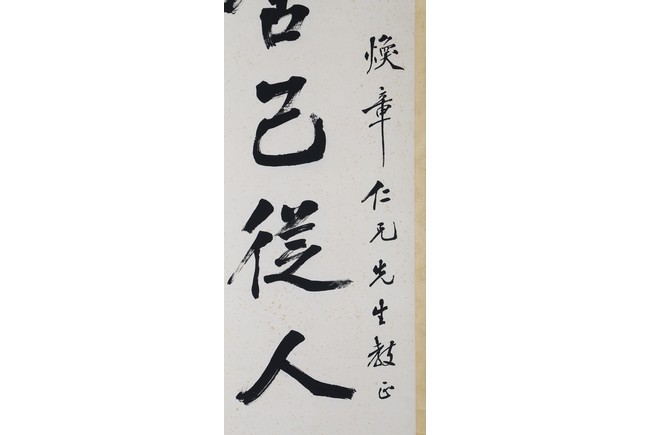 煥章仁兄先生教正
舍己從人